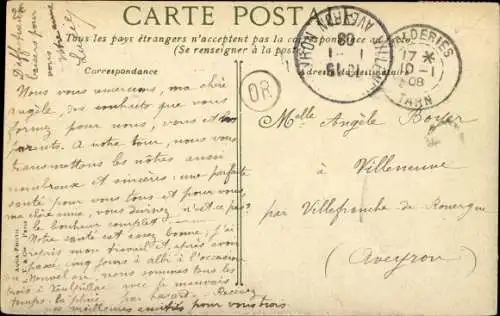 CARTE POSTALE
Tous les pays étrangers n'acceptent pas la correspondance au recto
(Se renseigner à la poste)
Correspondance
Adresse du destinataire
VALDERIES
17 *
10-1
08
TARN
AVEYRON
08
OR
D'affectueux
baisers pour
vous
votre amie
Lucie
Nous vous remercions, ma chère
Angèle, des souhaits que vous
formez pour nous, vous et vos
parents. A notre tour, nous vous
transmettons les nôtres aussi
nombreux et sincères: une parfaite
santé pour vous tous et pour vous,
ma chère amie, vous désirez n'est ce pas?
le bonheur complet
Notre santé est assez bonne, j'ai
repris mon travail et, après avoir
passé cinq jours à Albi à l'occasion
du Nouvel an, nous sommes tous les
trois à avec le mauvais
temps: la pluie par hasard. Recevez
nos meilleures amitiés pour vous trois
Melle Angèle Boyer
à Villeneuve
par Villefranche de Rouergue
(Aveyron)